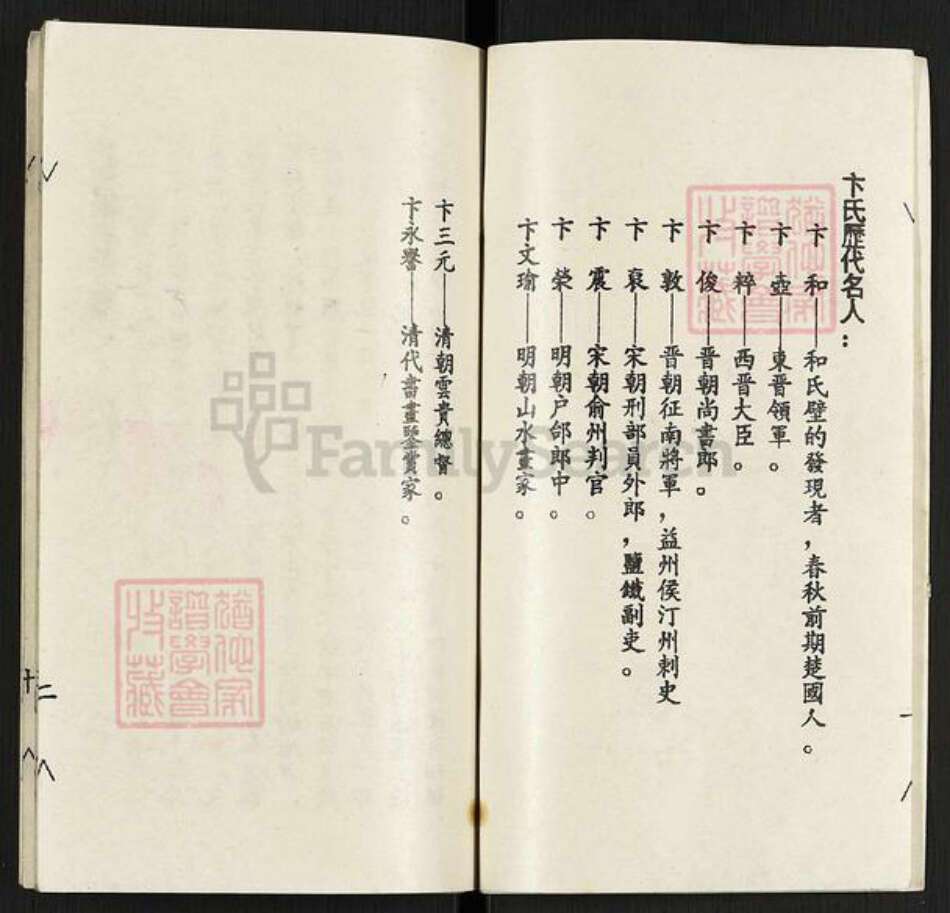 卞氏歷代名人：
卞　和——和氏壁的發現者，春秋前期楚國人。
卞　壺——東晋領軍。
卞　粹——西晋大臣。
卞　俊——晋朝尚書郎。
卞　敦——晋朝征南將軍，益州侯汀州刺史
卞　袞——宋朝刑部員外郎，鹽鐵副吏。
卞　震——宋朝俞州判官。
卞　榮——明朝户部郎中。
卞文瑜——明朝山水畫家。
卞三元——清朝雲貴總督。
卞永譽——清代書畫鑒賞家。
十二
FamilySearch
譜學會
收藏